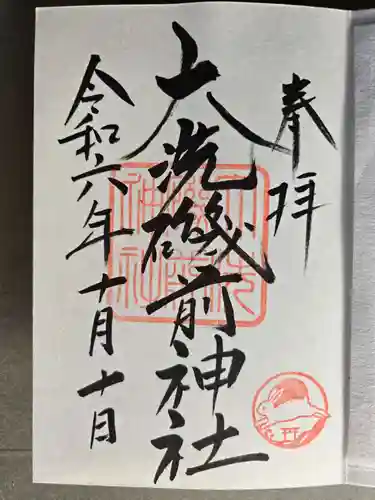 奉拝
大洗磯前神社
令和六年十月十日
大洗磯前神社